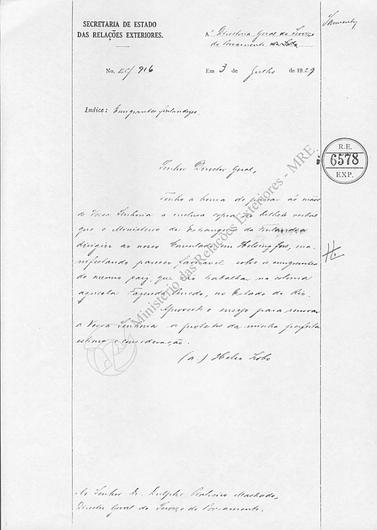 SECRETARIA DE ESTADO
DAS RELAÇÕES EXTERIORES.
Á Directoria Geral do Serviço
de Povoamento
No. EC/ 916
Em 3 de Julho de 1929
Indice: Emigrantes finlandezes
R.E.
6578
EXP.
Senhor Director Geral,
Tenho a honra de passar ás mãos
de Vossa Senhoria a inclusa copia do bilhete verbal
que o Ministerio de Estrangeiros da Finlandia
dirigiu ao nosso Consulado em Helsingfors, ma-
nifestando parecer favoravel sobre os emigrantes
do mesmo paiz, que trabalha na colonia
agricola Fazenda Penedo, no Estado do Rio.
Aproveito o ensejo para renovar
a Vossa Senhoria os protestos da minha perfeita
estima e consideração.
(a.) Helio Lobo
Ao Senhor Dr. Dulphe Pinheiro Machado,
Director Geral do Serviço de Povoamento.
Ministério das Relações Exteriores - MRE